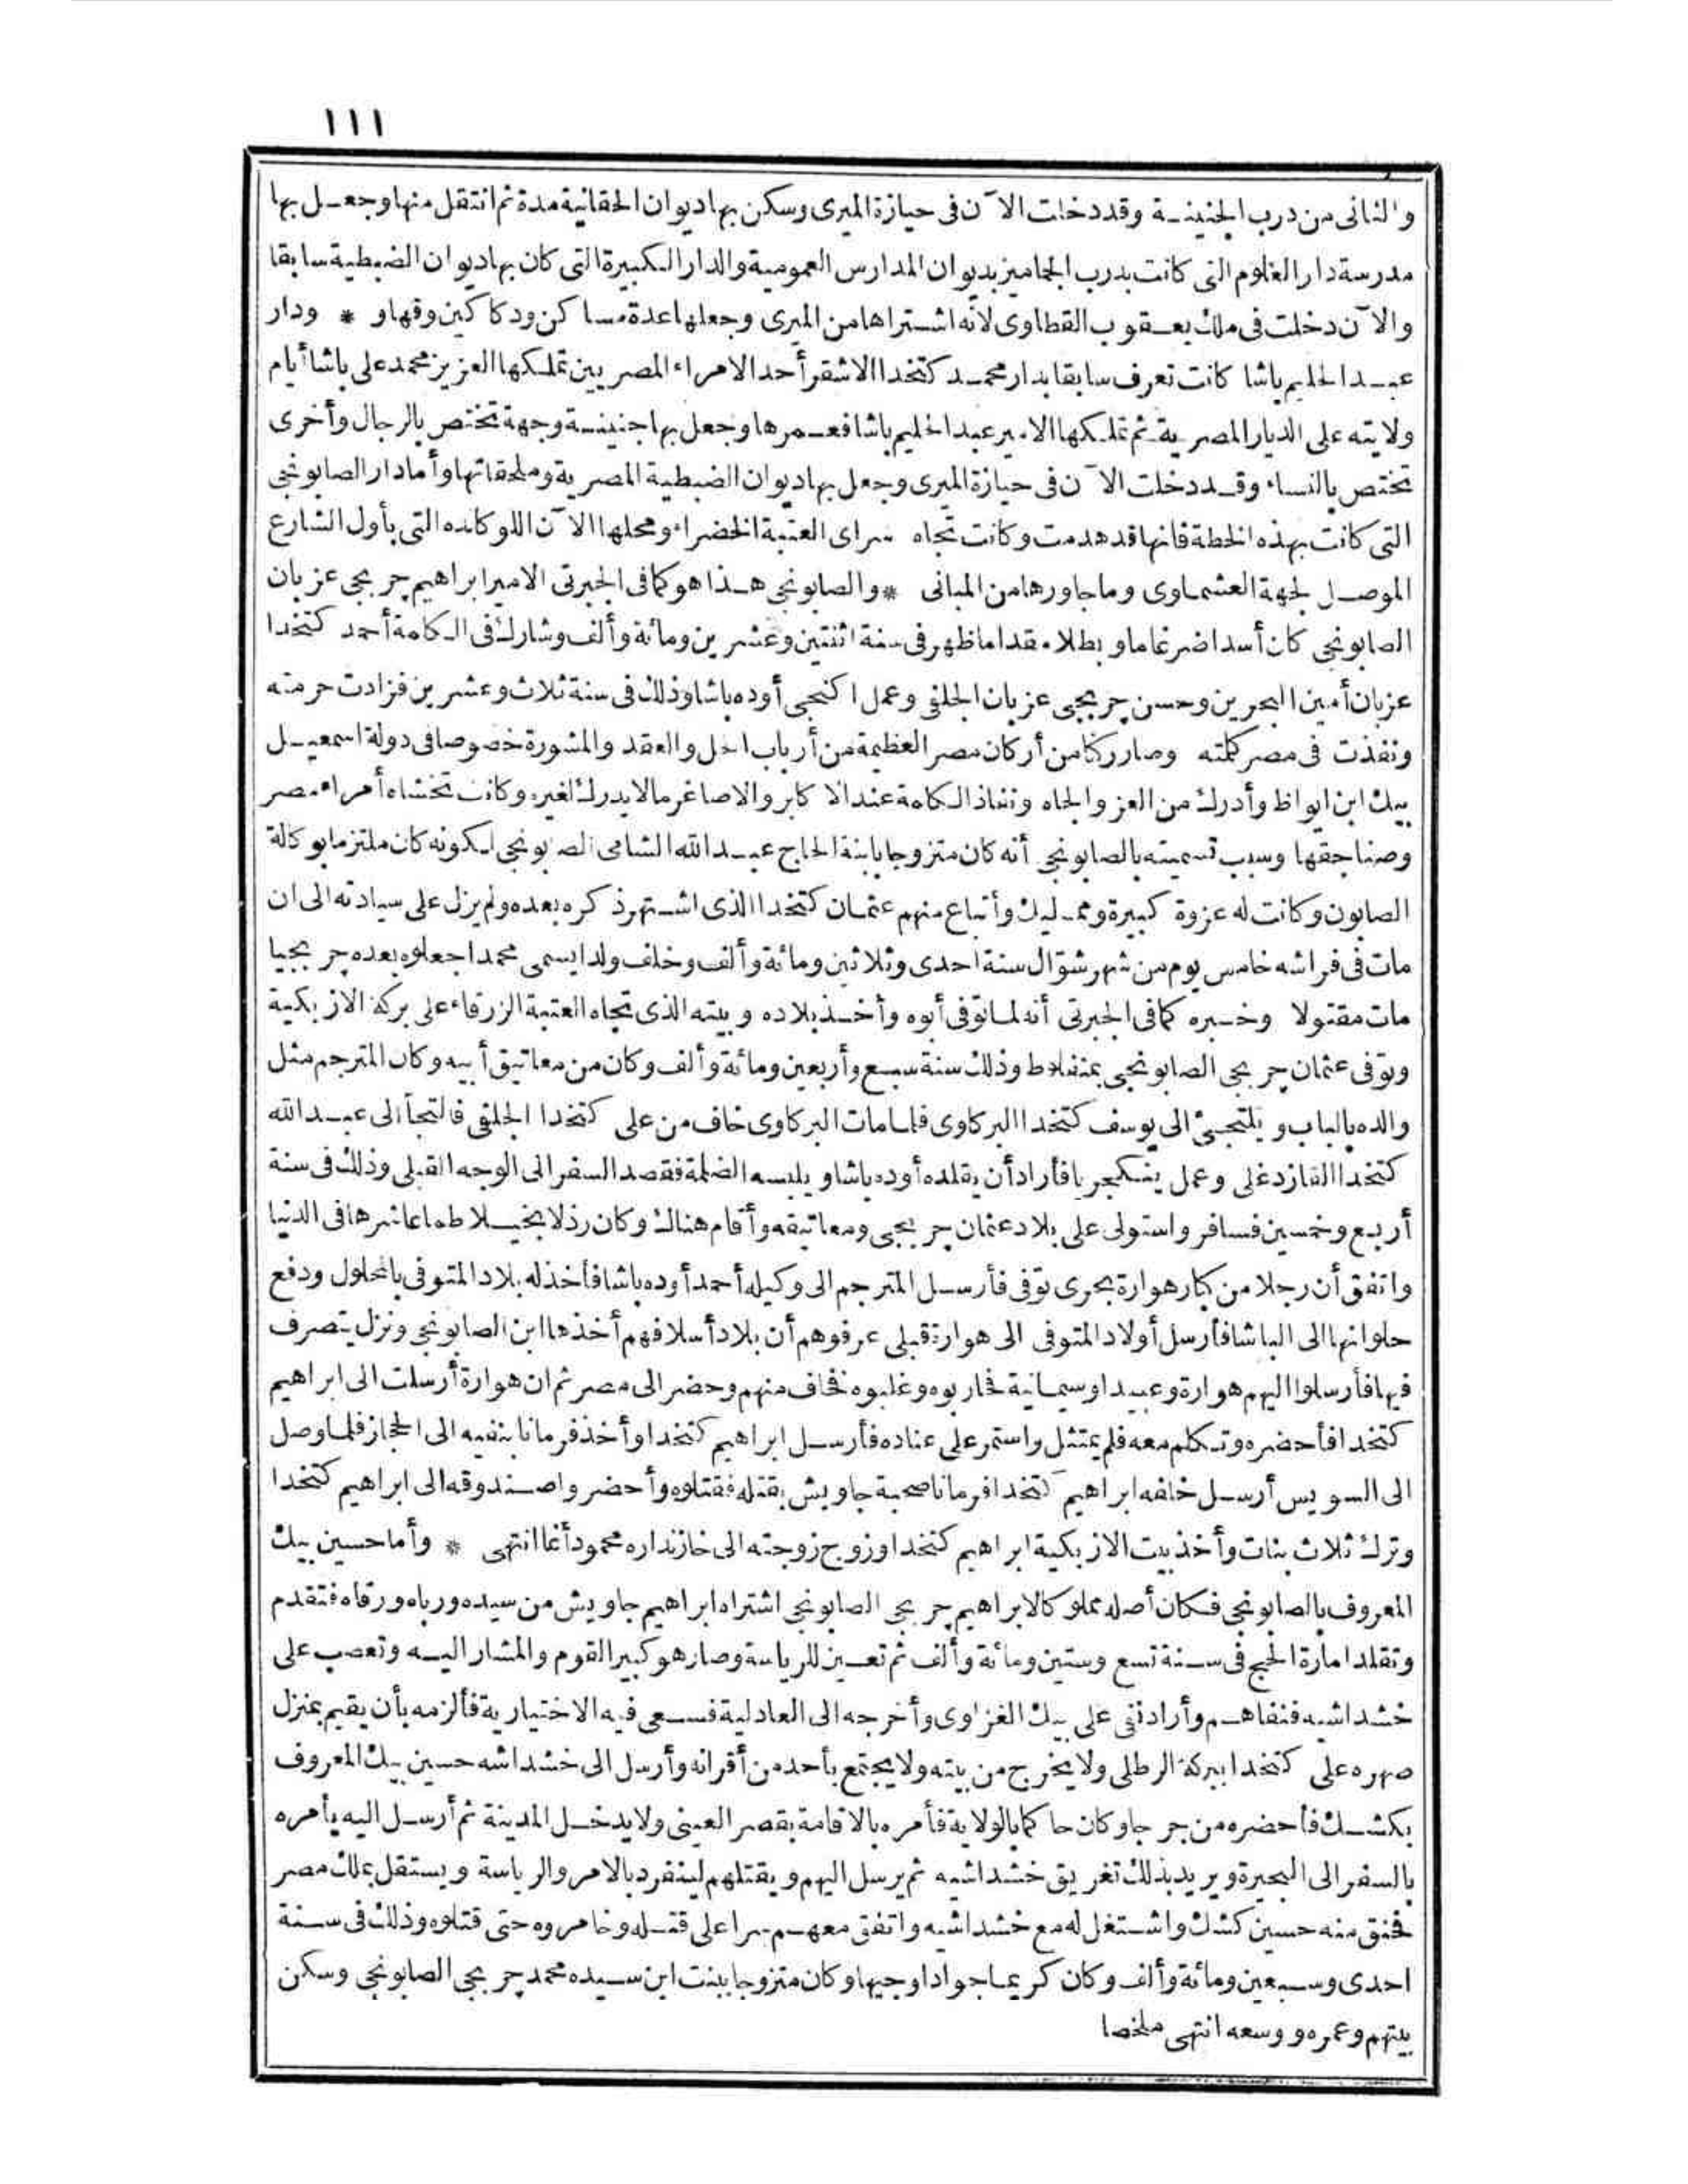 ١١١
والثانى من درب الجنينة وقد دخلت الآن فى حيازة الميرى وسكن بها ديوان الحقانية مدة ثم انتقل منها وجعل بها
مدرسة دار العلوم التى كانت بدرب الجماميز بديوان المدارس العمومية والدار الكبيرة التى كان بها ديوان الضبطية سابقا
والآن دخلت فى ملك يعقوب القطاوى لانه اشتراها من الميرى وجعلها عدة مساكن ودكاكين وقهاو * ودار
عبد الحليم باشا كانت تعرف سابقا بدار محمد كتخدا الاشقر أحد الامراء المصريين تملكها العزيز محمد على باشا أيام
ولايته على الديار المصرية ثم تملكها الامير عبد الحليم باشا فعمرها وجعل بها جنينة وجهة تختص بالرجال وأخرى
تختص بالنساء وقد دخلت الآن فى حيازة الميرى وجعل بها ديوان الضبطية المصرية وملحقاتها وأما دار الصابونجى
التى كانت بهذه الخطة فانها قد هدمت وكانت تجاه سراى العتبة الخضراء ومحلها الآن اللوكانده التى بأول الشارع
الموصل لجهة العشماوى وما جاورها من المبانى * والصابونجى هذا هو كما فى الجبرتى الامير ابراهيم جربجى عزبان
الصابونجى كان أسدا ضرغاما وبطلا مقداما ظهر فى سنة اثنتين وعشرين ومائة وألف وشارك فى الكلمة أحمد كتخدا
عزبان أمين البحرين وحسن جربجى عزبان الجلفى وعمل اكنجى أوده باشا وذلك فى سنة ثلاث وعشرين فزادت حرمته
ونفذت فى مصر كلمته وصار ركنا من أركان مصر العظيمة من أرباب الحل والعقد والمشورة خصوصا فى دولة اسمعيل
بيك ابن ايواظ وأدرك من العز والجاه ونفاذ الكلمة عند الاكابر والاصاغر مالا يدرك لغيره وكانت تخشاه أمراء مصر
وصناجقها وسبب تسميته بالصابونجى أنه كان متزوجا بابنة الحاج عبد الله الشامى الصابونجى لكونه كان ملتزما بوكالة
الصابون وكانت له عزوة كبيرة ومماليك وأتباع منهم عثمان كتخدا الذى اشتهر ذكره بعده ولم يزل على سيادته الى ان
مات فى فراشه خامس يوم من شهر شوّال سنة احدى وثلاثين ومائة وألف وخلف ولدا يسمى محمدا جعلوه بعده جربجيا
مات مقتولا وخبره كما فى الجبرتى أنه لما توفى أبوه وأخذ بلاده وبيته الذى تجاه العتبة الزرقاء على بركة الازبكية
وتوفى عثمان جربجى الصابونجى بمنفلوط وذلك سنة سبع وأربعين ومائة وألف وكان من معاتيق أبيه وكان المترجم مثل
والده بالباب ويلتجئ الى يوسف كتخدا البركاوى فلما مات البركاوى خاف من على كتخدا الجلفى فالتجأ الى عبد الله
كتخدا القازدغلى وعمل ينكجريا فأراد أن يقلده أوده باشا ويلبسه الضلمة فقصد السفر الى الوجه القبلى وذلك فى سنة
أربع وخمسين فسافر واستولى على بلاد عثمان جربجى ومعاتيقه وأقام هناك وكان رذلا بخيلا طماعا شرها فى الدنيا
واتفق أن رجلا من كبار هوارة بحرى توفى فأرسل المترجم الى وكيله أحمد أوده باشا فأخذ له بلاد المتوفى بالمحلول ودفع
حلوانها الى الباشا فأرسل أولاد المتوفى الى هوارة قبلى عرفوهم أن بلاد أسلافهم أخذها ابن الصابونجى ونزل يتصرف
فيها فأرسلوا اليهم هوارة وعبيدا وسيمانية فحاربوه وغلبوه فخاف منهم وحضر الى مصر ثم ان هوارة أرسلت الى ابراهيم
كتخدا فأحضره وتكلم معه فلم يمتثل واستمر على عناده فأرسل ابراهيم كتخدا وأخذ فرمانا بنفيه الى الحجاز فلما وصل
الى السويس أرسل خلفه ابراهيم كتخدا فرمانا صحبة جاويش بقتله فقتلوه وأحضروا صندوقه الى ابراهيم كتخدا
وترك ثلاث بنات وأخذ بيت الازبكية ابراهيم كتخدا وزوج زوجته الى خازنداره محمود أغا انتهى * وأما حسين بيك
المعروف بالصابونجى فكان أصله مملوكا لابراهيم جربجى الصابونجى اشتراه ابراهيم جاويش من سيده ورباه ورقاه فتقدم
وتقلد امارة الحج فى سنة تسع وستين ومائة وألف ثم تعين للرياسة وصار هو كبير القوم والمشار اليه وتعصب على
خشداشيه فنفاهم وأراد نفى على بيك الغزاوى وأخرجه الى العادلية فسعى فيه الاختيارية فألزمه بأن يقيم بمنزل
صهره على كتخدا ببركة الرطلى ولا يخرج من بيته ولا يجتمع بأحد من أقرانه وأرسل الى خشداشه حسين بيك المعروف
بكشك فأحضره من جرجا وكان حاكما بالولاية فأمره بالاقامة بقصر العينى ولا يدخل المدينة ثم أرسل اليه يأمره
بالسفر الى البحيرة ويريد بذلك تغريق خشداشيه ثم يرسل اليهم ويقتلهم لينفرد بالامر والرياسة ويستقل بملك مصر
فحنق منه حسين كشك واشتغل له مع خشداشيه واتفق معهم سرا على قتله وخامروه حتى قتلوه وذلك فى سنة
احدى وسبعين ومائة وألف وكان كريما جوادا وجيها وكان متزوجا ببنت ابن سيده محمد جربجى الصابونجى وسكن
بيتهم وعمره ووسعه انتهى ملخصا